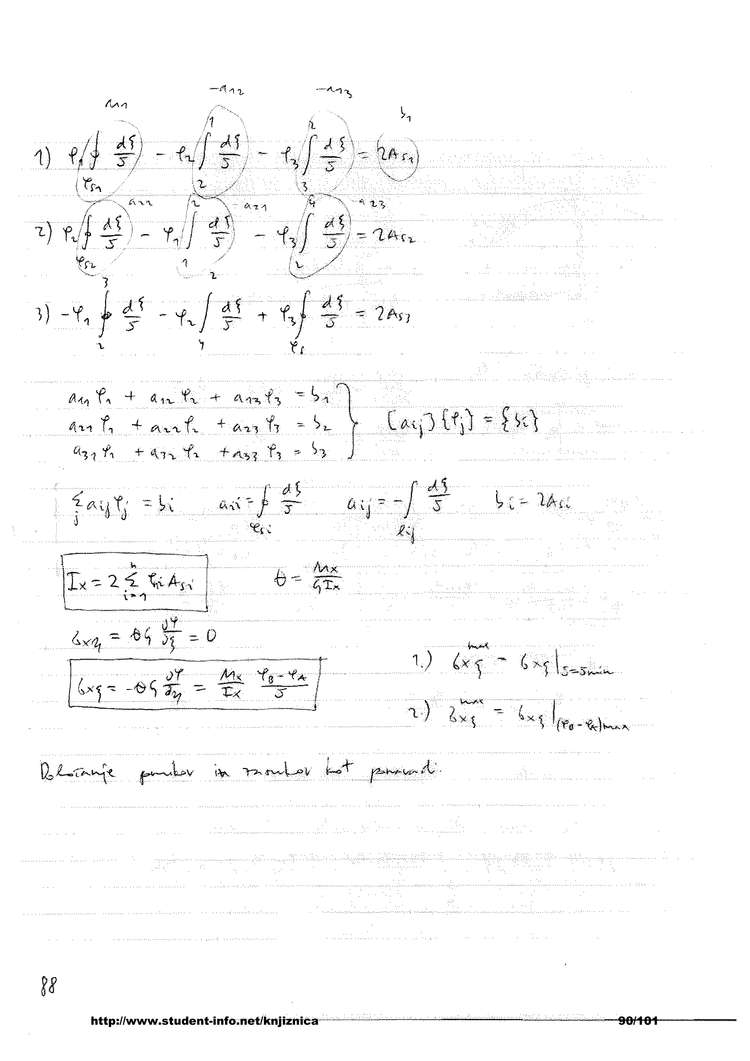 a₁₁ -a₁₂ -a₁₃ b₁
1) φ₁ ∮_{φs₁} dξ/δ - φ₂ ∫₂¹ dξ/δ - φ₃ ∫₃² dξ/δ = 2As₁
a₂₂ -a₂₁ -a₂₃
2) φ₂ ∮_{φs₂} dξ/δ - φ₁ ∫₁² dξ/δ - φ₃ ∫₂⁴ dξ/δ = 2As₂
3) -φ₁ ∮₂³ dξ/δ - φ₂ ∫₄² dξ/δ + φ₃ ∮_{φs} dξ/δ = 2As₃
a₁₁φ₁ + a₁₂φ₂ + a₁₃φ₃ = b₁
a₂₁φ₁ + a₂₂φ₂ + a₂₃φ₃ = b₂ } [aij]{φj} = {bi}
a₃₁φ₁ + a₃₂φ₂ + a₃₃φ₃ = b₃
Σ_j aijφj = bi aii = ∮_{φsi} dξ/δ aij = -∫_{lij} dξ/δ bi = 2Asi
Ix = 2 Σ_{i=1}^{n} φi Asi θ = Mx/GIx
σxη = θG ∂φ/∂ξ = 0
σxξ = -θG ∂φ/∂η = Mx/Ix (φB-φA)/δ
1.) σxξ^max = σxξ|δ=δmin
2.) σxξ^max = σxξ|(φB-φA)max
Določanje pomikov in zasukov kot ponavadi.
88
http://www.student-info.net/knjiznica 90/101